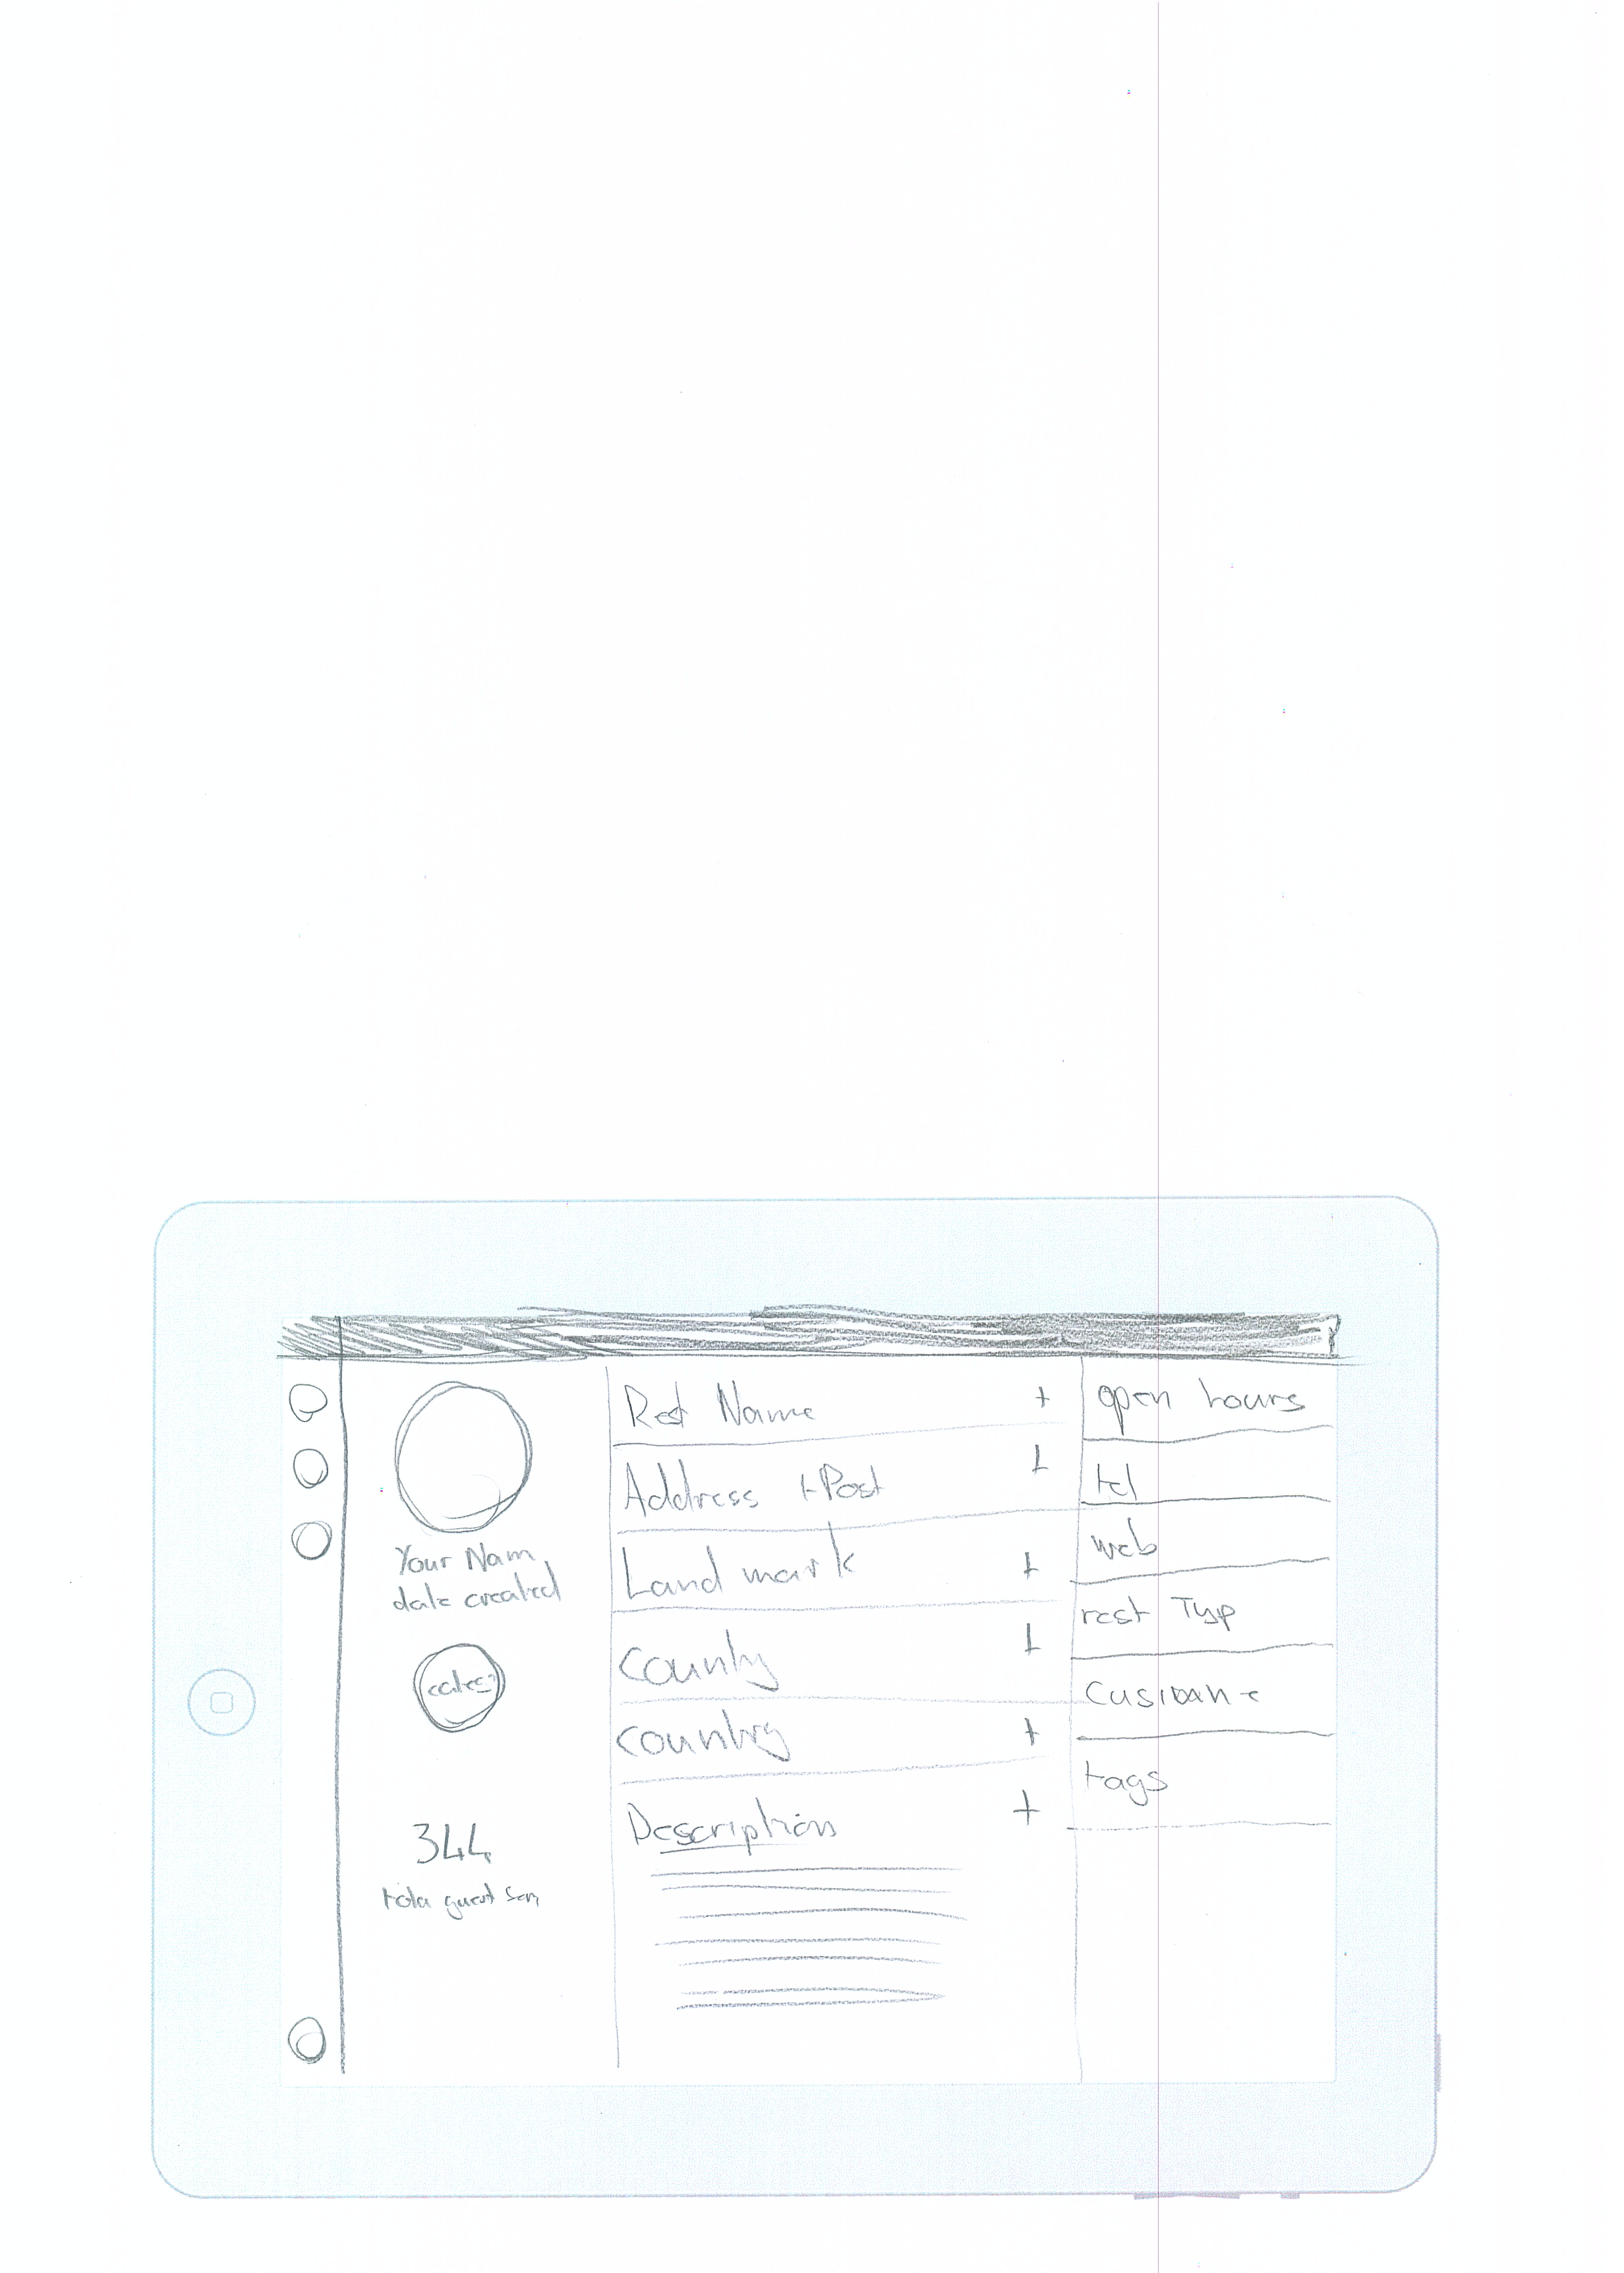 Your Nam
date created
344
guest
Rest Name +
Address + Post +
Land mark +
County +
country +
Description +
open hours
tel
web
rest Typ
tags